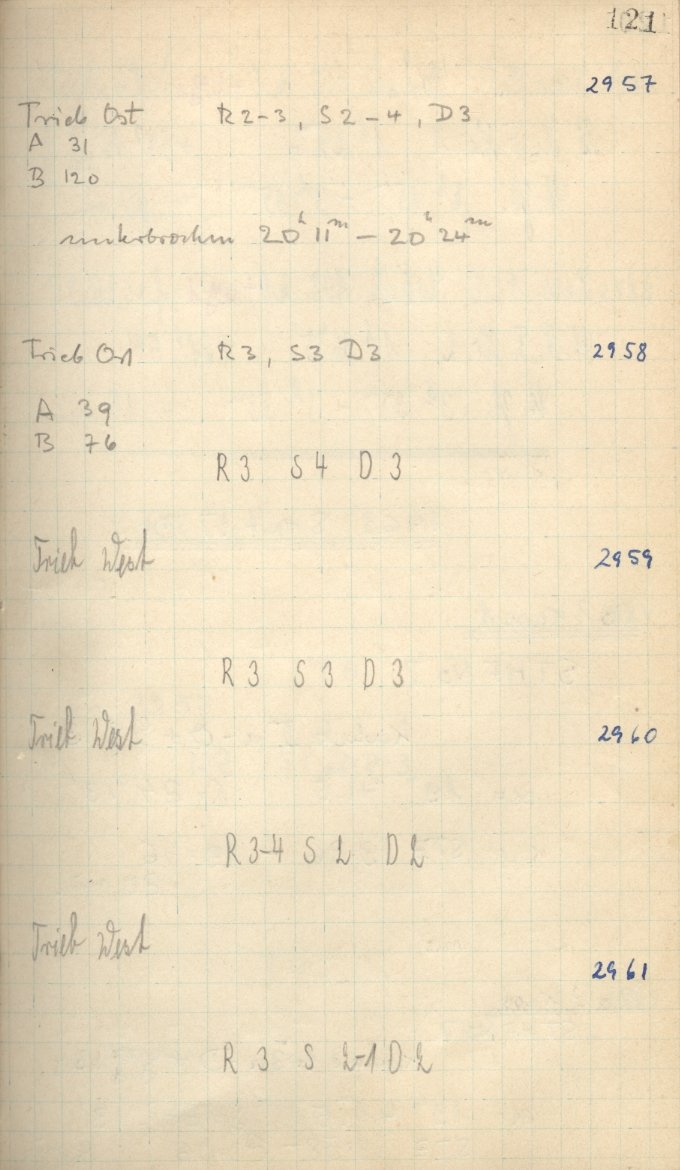 121
2957
Trieb Ost R2-3, S2-4, D3
A 31
B 120
unterbrochen 20h 11m - 20h 24m
Trieb Ost R3, S3 D3 2958
A 39
B 76
R3 S4 D3
Trieb West 2959
R3 S3 D3
Trieb West 2960
R3-4 S2 D2
Trieb West
2961
R 3 S 2-1 D2